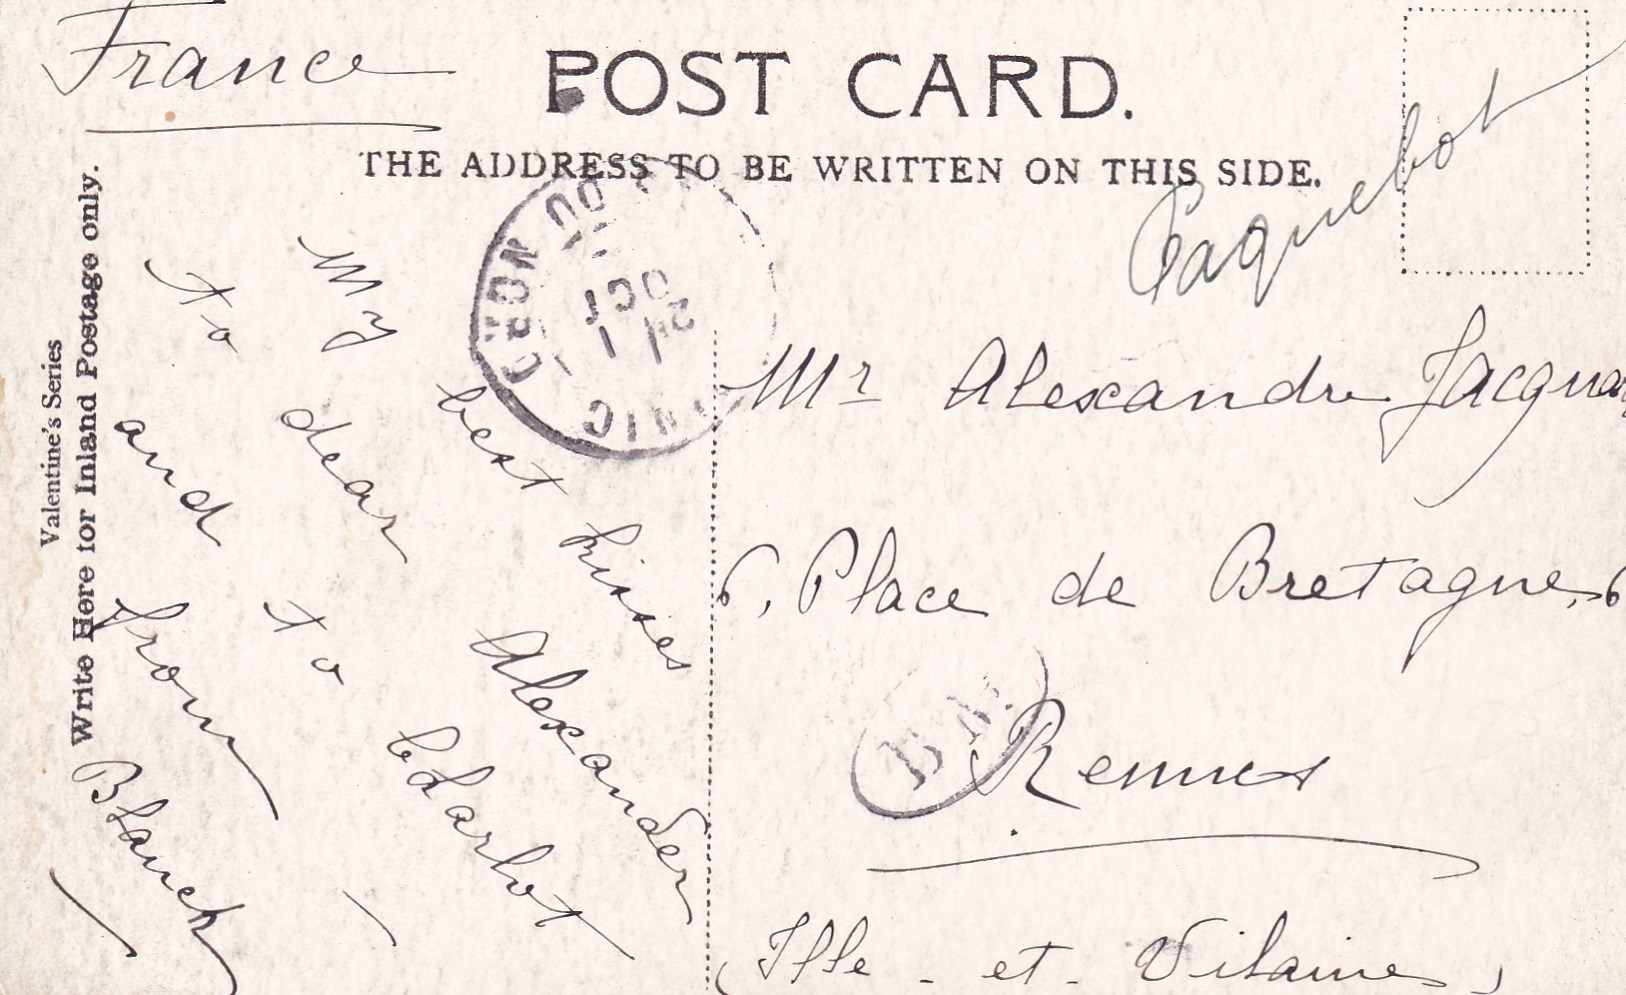 France
POST CARD.
THE ADDRESS TO BE WRITTEN ON THIS SIDE.
Paquebot
Valentine's Series
Write Here for Inland Postage only.
My best kisses
to dear Alexander
and to Charlot
from
Blanch
DU NORD
21
OCT
Mr Alexandre
6, Place de Bretagne, 6
B M.
Rennes
(Ille-et-Vilaine)